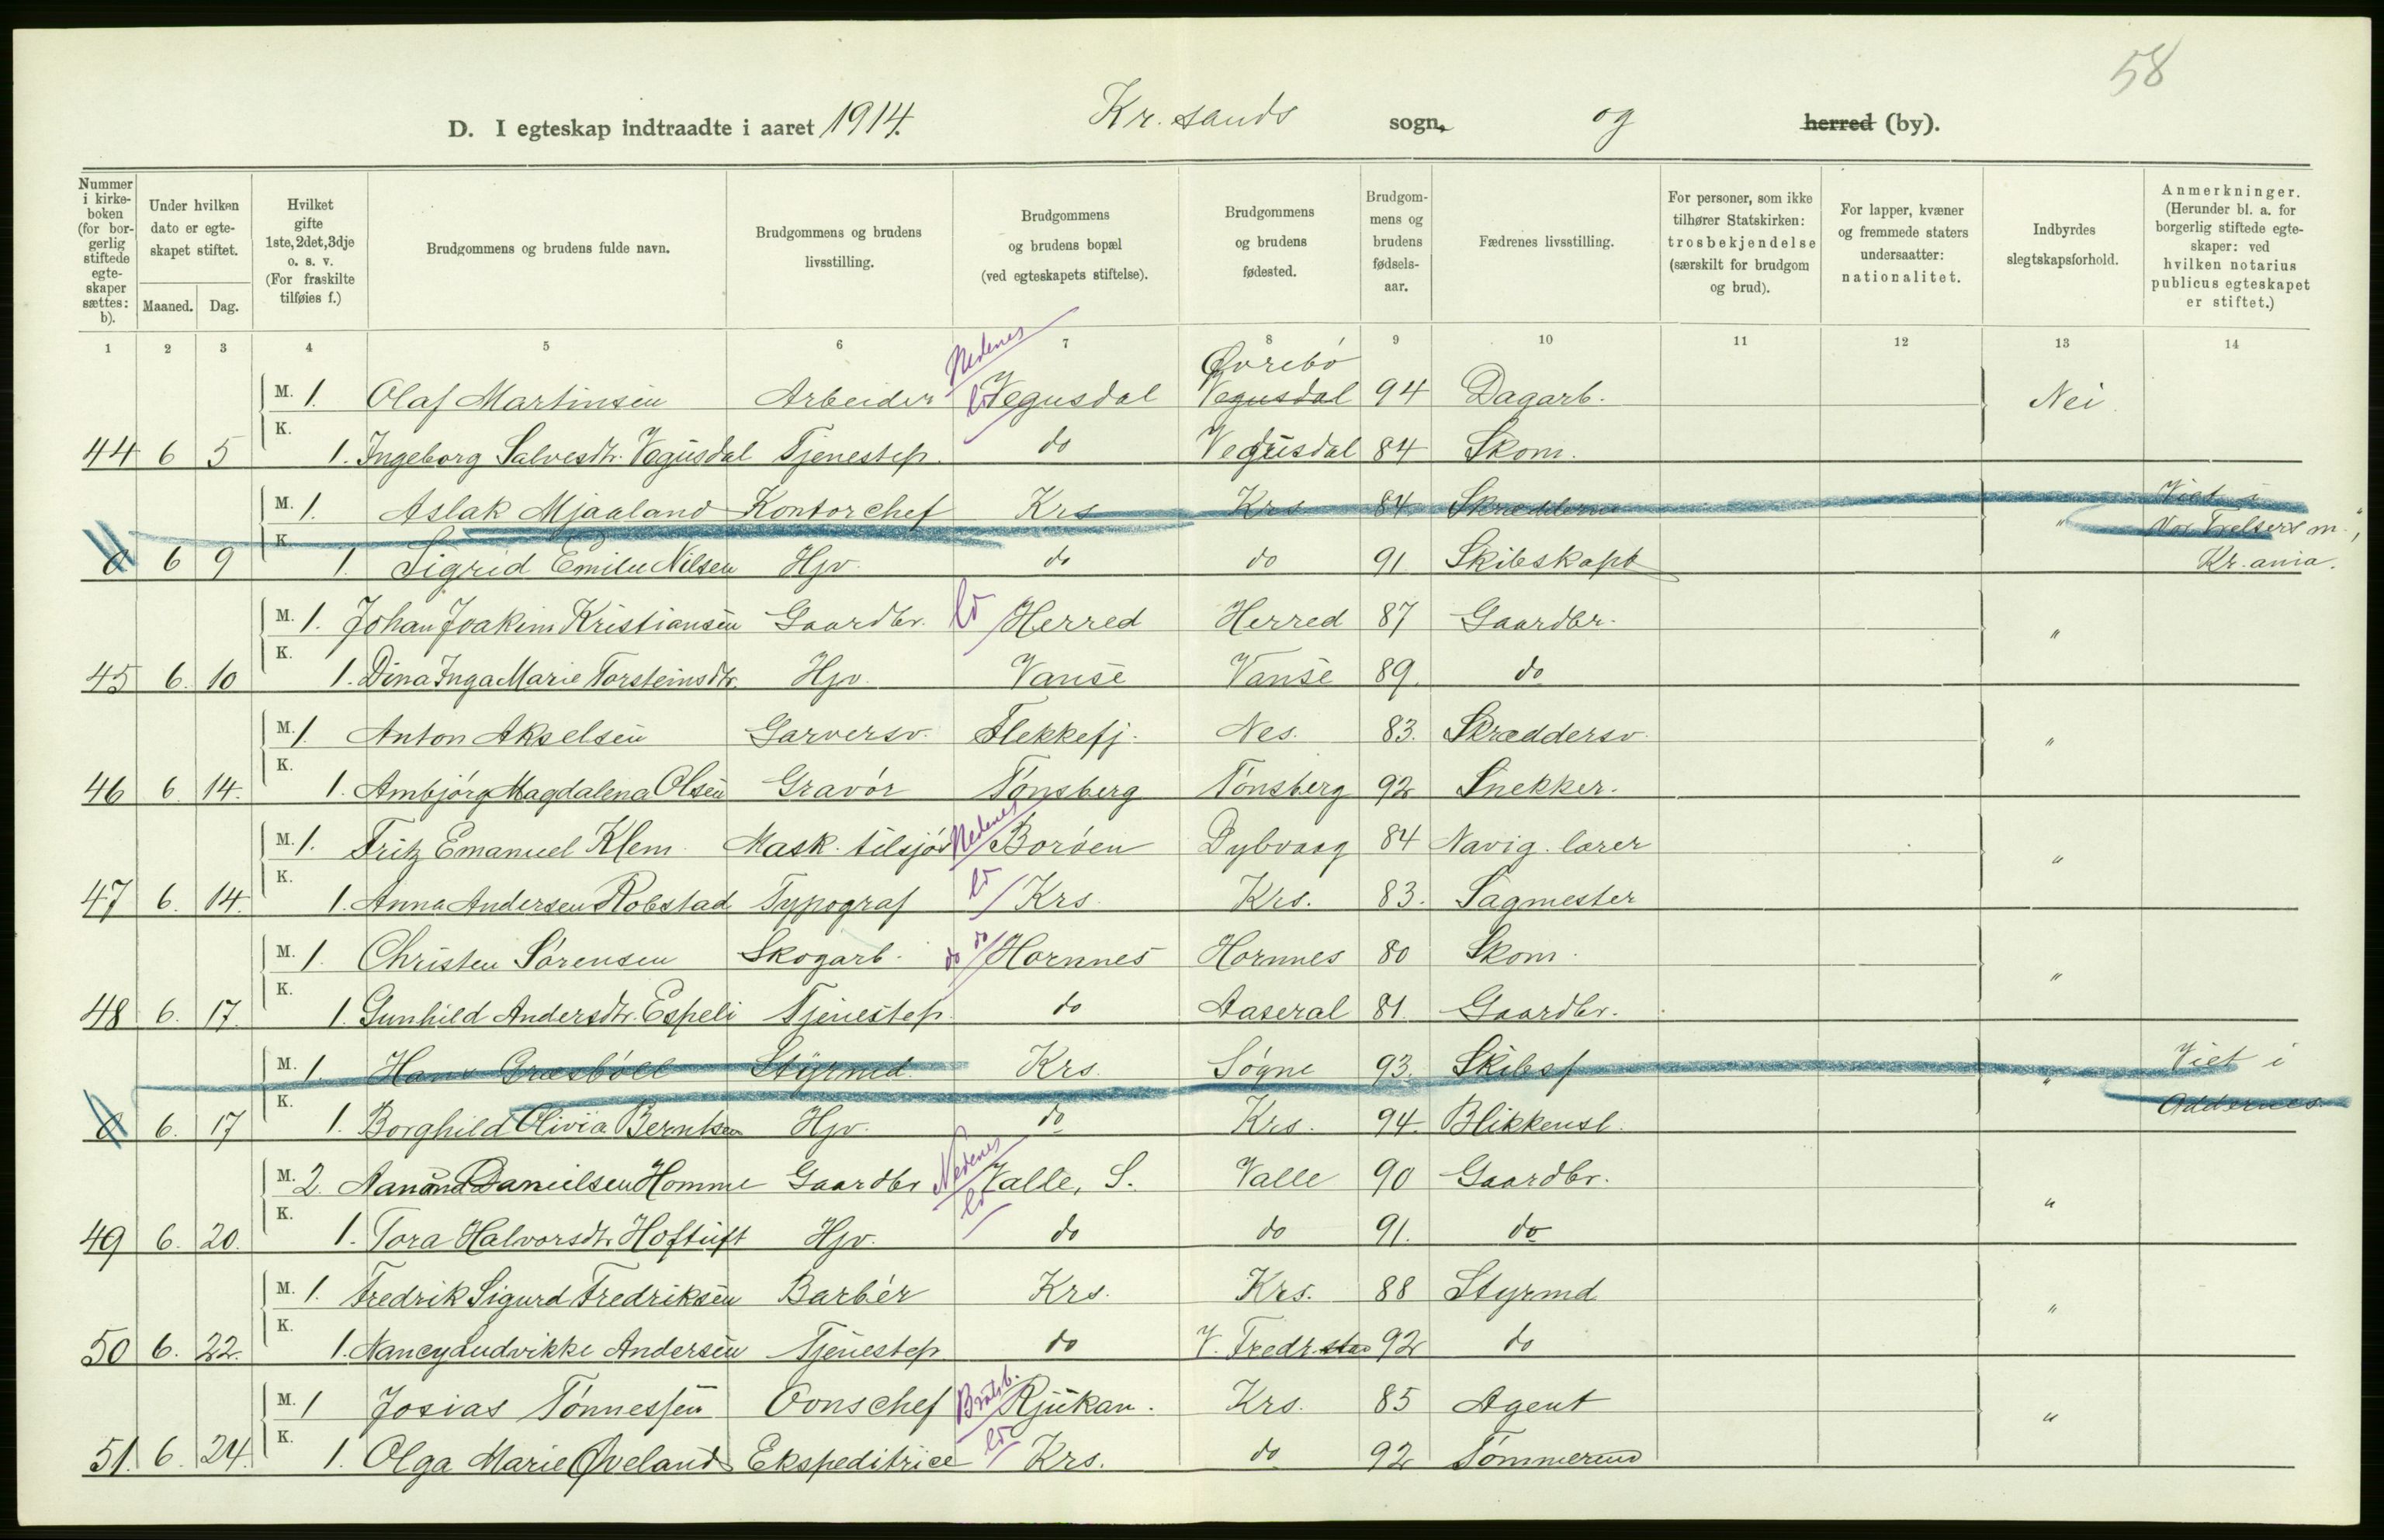 58
D. I egteskap indtraadte i aaret 1914. Kr.sands sogn, og herred (by).
Nummer i kirkeboken (for borgerlig stiftede egteskaper sættes: b).
Under hvilken dato er egteskapet stiftet.
Maaned. Dag.
Hvilket gifte 1ste, 2det, 3dje o. s. v. (For fraskilte tilføies f.)
Brudgommens og brudens fulde navn.
Brudgommens og brudens livsstilling.
Brudgommens og brudens bopæl (ved egteskapets stiftelse).
Brudgommens og brudens fødested.
Brudgommens og brudens fødselsaar.
Fædrenes livsstilling.
For personer, som ikke tilhører Statskirken: trosbekjendelse (særskilt for brudgom og brud).
For lapper, kvæner og fremmede staters undersaatter: nationalitet.
Indbyrdes slegtskapsforhold.
Anmerkninger. (Herunder bl. a. for borgerlig stiftede egteskaper: ved hvilken notarius publicus egteskapet er stiftet.)
1 2 3 4 5 6 7 8 9 10 11 12 13 14
Nedenes Øvrebö
M. 1. Olaf Martinsen Arbeider Vegusdal Vegusdal 94 Dagarb. Nei
44 6 5 K. 1. Ingeborg Salvesdtr. Vegusdal Tjenestep. do Vegusdal 84 Skom.
M. 1. Aslak Mjaaland Kontorchef Krs Krs 84 Viet i
0 6 9 K. 1. Sigrid Emilie Nilsen Hjv. do do 91 Skibskapt " Vor Frelsers m.,
Kr.ania.
M. 1. Johan Joakim Kristiansen Gaardbr. Herred Herred 87 Gaardbr. "
45 6. 10 K. 1. Dina Inga Marie Torsteinsdtr. Hjv. Vanse Vanse 89. do
M. 1 Anton Akselsen Garversv. Flekkefj. Nes. 83. Skræddersv. "
46 6 14. K. 1. Ambjörg Magdalena Olsen Gravör Tönsberg Tönsberg 92 Snekker.
Nedenes
M. 1. Fritz Emanuel Klem Mask. tilsjös Boröen Dybvaag 84 Navig. lærer "
47 6. 14. K. 1. Anna Andersen Robstad Typograf Krs. Krs. 83. Sagmester
do do
M. 1. Christen Sörensen Skogarb. Hornnes Hornnes 80 Skom. "
48 6. 17. K. 1. Gunhild Andersdtr. Espeli Tjenestep. do Aaseral 81. Gaardbr.
M. 1. Hans Græsböll Styrmd. Krs. Søgne 93. Skibsf " Viet i
0 6. 17 K. 1. Borghild Olivia Berntsen Hjv. do Krs. 94. Blikkensl. Oddernes
Nedenes
M. 2. Aanund Danielsen Homme Gaardbr Valle, S. Valle 90 Gaardbr. "
49 6. 20. K. 1. Tora Halvorsdtr Hoftuft Hjv. do do 91. do
M. 1. Fredrik Sigurd Fredriksen Barbér Krs. Krs. 88 Styrmd "
50 6. 22. K. 1. Nancy Ludvikke Andersen Tjenestep do V. Fredr.stad 92 do
Bratsb.
M. 1 Josias Tönnessen Ovnschef Rjukan. Krs. 85 Agent "
51. 6. 24. K. 1. Olga Marie Øveland Ekspeditrice Krs. do 92 Tömmermd